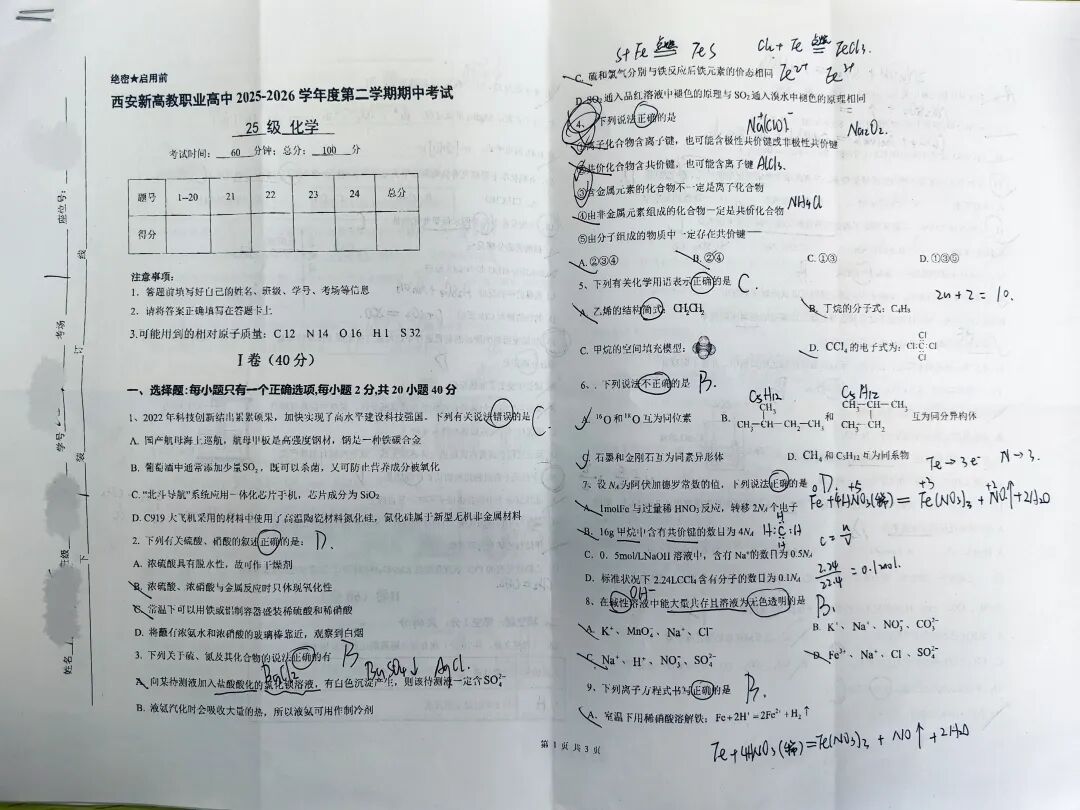 绝密★启用前
西安新高教职业高中 2025-2026 学年度第二学期期中考试
25 级 化学
考试时间: 60 分钟; 总分: 100 分
题号 1--20 21 22 23 24 总分
得分
注意事项:
1. 答题前填写好自己的姓名、班级、学号、考场等信息
2. 请将答案正确填写在答题卡上
3.可能用到的相对原子质量: C 12 N 14 O 16 H 1 S 32
I 卷 (40 分)
一、选择题:每小题只有一个正确选项,每小题 2 分,共 20 小题 40 分
1、2022 年科技创新结出累累硕果,加快实现了高水平建设科技强国。下列有关说法错误的是 C
A. 国产航母海上巡航,航母甲板是高强度钢材,钢是一种铁碳合金
B. 葡萄酒中通常添加少量SO₂,既可以杀菌,又可防止营养成分被氧化
C. “北斗导航”系统应用一体化芯片手机,芯片成分为 SiO₂
D. C919 大飞机采用的材料中使用了高温陶瓷材料氮化硅,氮化硅属于新型无机非金属材料
2. 下列有关硫酸、硝酸的叙述正确的是: D.
A. 浓硫酸具有脱水性,故可作干燥剂
B. 浓硫酸、浓硝酸与金属反应时只体现氧化性
C. 常温下可以用铁或铝制容器盛装稀硫酸和稀硝酸
D. 将蘸有浓氨水和浓硝酸的玻璃棒靠近,观察到白烟
3. 下列关于硫、氮及其化合物的说法正确的有 B
BaCl2 BaSO4↓ AgCl.
A. 向某待测液加入盐酸酸化的氯化钡溶液,有白色沉淀产生,则该待测液一定含SO₄²⁻
B. 液氨汽化时会吸收大量的热,所以液氨可用作制冷剂
座位号:
考场
学号
班级
姓名
线
订
装
下
S+Fe 点燃 FeS Cl2 + Fe 点燃 FeCl3.
C. 硫和氯气分别与铁反应后铁元素的价态相同 Fe2+ Fe3+
D. SO₂通入品红溶液中褪色的原理与 SO₂通入溴水中褪色的原理相同
4、下列说法正确的是
Na2O2.
①离子化合物含离子键,也可能含极性共价键或非极性共价键
②共价化合物含共价键,也可能含离子键 AlCl3.
③含金属元素的化合物不一定是离子化合物
④由非金属元素组成的化合物一定是共价化合物 NH4Cl
⑤由分子组成的物质中一定存在共价键
A. ②③④ B. ②④ C. ①③ D. ①③⑤
5、下列有关化学用语表示正确的是 C.
2n+2=10.
A. 乙烯的结构简式: CH₂CH₂ B. 丁烷的分子式: C₄H₈
C. 甲烷的空间填充模型: D. CCl₄ 的电子式为:
Cl
Cl:C:Cl
Cl
6、. 下列说法不正确的是 B.
C5H12 C5H12
A. ¹⁶O 和 ¹⁸O 互为同位素 B. CH₃—CH—CH₂—CH₃ 和 互为同分异构体
CH₃
CH₂—CH—CH₃
CH₃—CH₂
C. 石墨和金刚石互为同素异形体 D. CH₄ 和 C₅H₁₂ 互为同系物
Fe→3e⁻ N→3.
7、设 Nₐ 为阿伏加德罗常数的值,下列说法正确的是 D.
0 +5 +3 +2
Fe+4HNO3(稀) = Fe(NO3)3 + NO↑+2H2O
A. 1molFe 与过量稀 HNO₃ 反应,转移 2Nₐ 个电子
B. 16g 甲烷中含有共价键的数目为 4Nₐ
H
H:C:H
H
c = n/V
C. 0. 5mol/LNaOH 溶液中,含有 Na⁺的数目为 0.5Nₐ
D. 标准状况下 2.24LCCl₄ 含有分子的数目为 0.1Nₐ
2.24/22.4 = 0.1mol.
OH⁻
8、在碱性溶液中能大量共存且溶液为无色透明的是 B.
A. K⁺、MnO₄⁻、Na⁺、Cl⁻ B. K⁺、Na⁺、NO₃⁻、CO₃²⁻
C. Na⁺、H⁺、NO₃⁻、SO₄²⁻ D. Fe³⁺、Na⁺、Cl⁻、SO₄²⁻
9、下列离子方程式书写正确的是 B.
A. 室温下用稀硝酸溶解铁: Fe+2H⁺=2Fe²⁺+H₂↑
Fe+4HNO3(稀)=Fe(NO3)3 + NO↑+2H2O
第 1 页 共 3 页